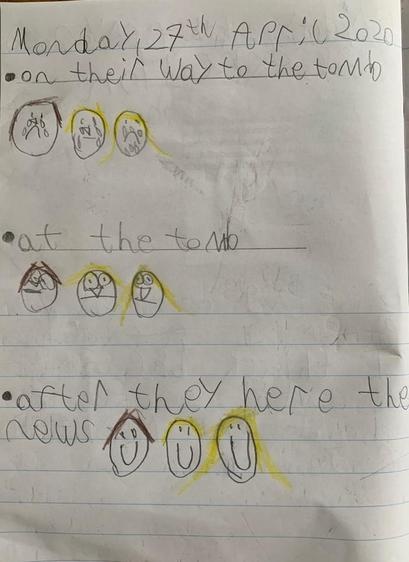 Monday, 27th April 2020
•on their way to the tomb
•at the tomb
•after they here the
news